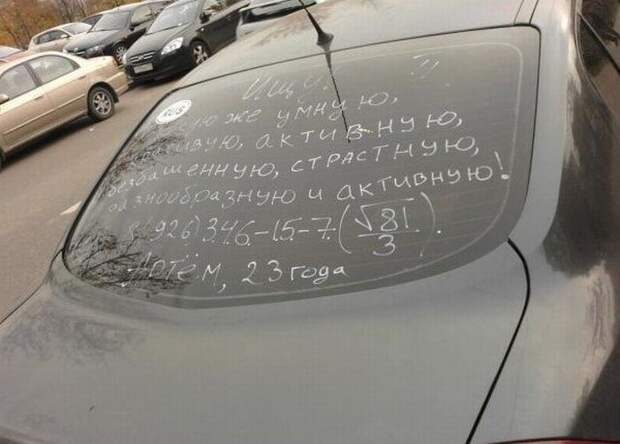 Ищу
RUS
же умную,
красивую, активную,
безбашенную, страстную,
разнообразную и активную!
8(926)346-15-7(√81/3).
Артём, 23 года